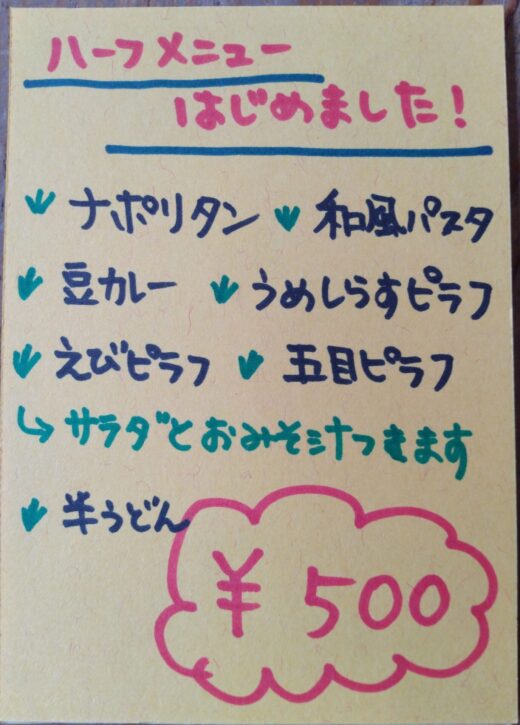 ハーフメニュー
はじめました!
ナポリタン 和風パスタ
豆カレー うめしらすピラフ
えびピラフ 五目ピラフ
↳ サラダとおみそ汁つきます
半うどん
¥500